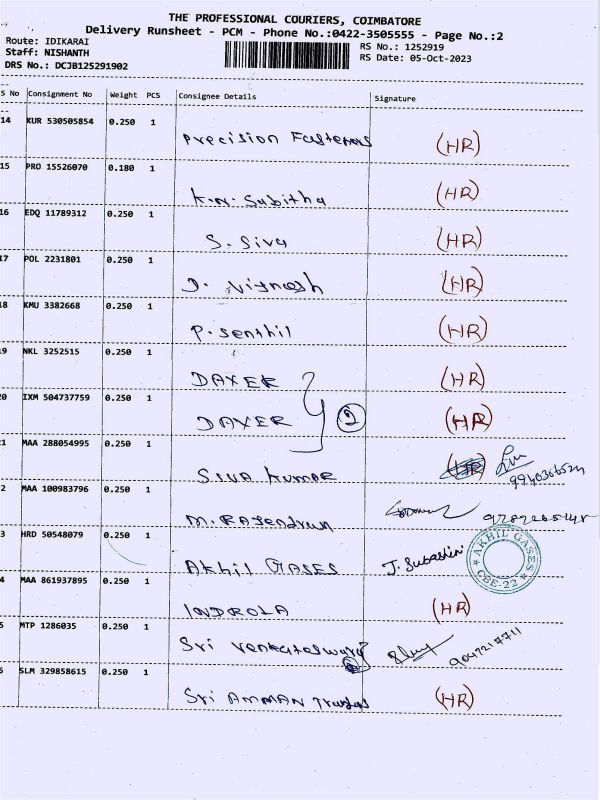 THE PROFESSIONAL COURIERS, COIMBATORE
Delivery Runsheet - PCM - Phone No.:0422-3505555 - Page No.:2
Route: IDIKARAI
RS No.: 1252919
Staff: NISHANTH
RS Date: 05-Oct-2023
DRS No.: DCJB125291902
S No Consignment No Weight PCS Consignee Details Signature
14 KUR 530505854 0.250 1 Precision Fasteners (HR)
15 PRO 15526070 0.180 1 K.N. Sabitha (HR)
16 EDQ 11789312 0.250 1 S. Siva (HR)
17 POL 2231801 0.250 1 D. Vignesh (HR)
18 KMU 3382668 0.250 1 P. Senthil (HR)
19 NKL 3252515 0.250 1 DAXER (HR)
20 IXM 504737759 0.250 1 DAXER 2 (HR)
1 MAA 288054995 0.250 1 Siva Kumar
2 MAA 100983796 0.250 1 M. Rajendran
3 HRD 50548079 0.250 1 Akhil GASES J. Subashini
AKHIL GASES
CBE-22
4 MAA 861937895 0.250 1 INDROLA (HR)
5 MTP 1286035 0.250 1 Sri 9047217711
SLM 329858615 0.250 1 Sri AMMAN (HR)